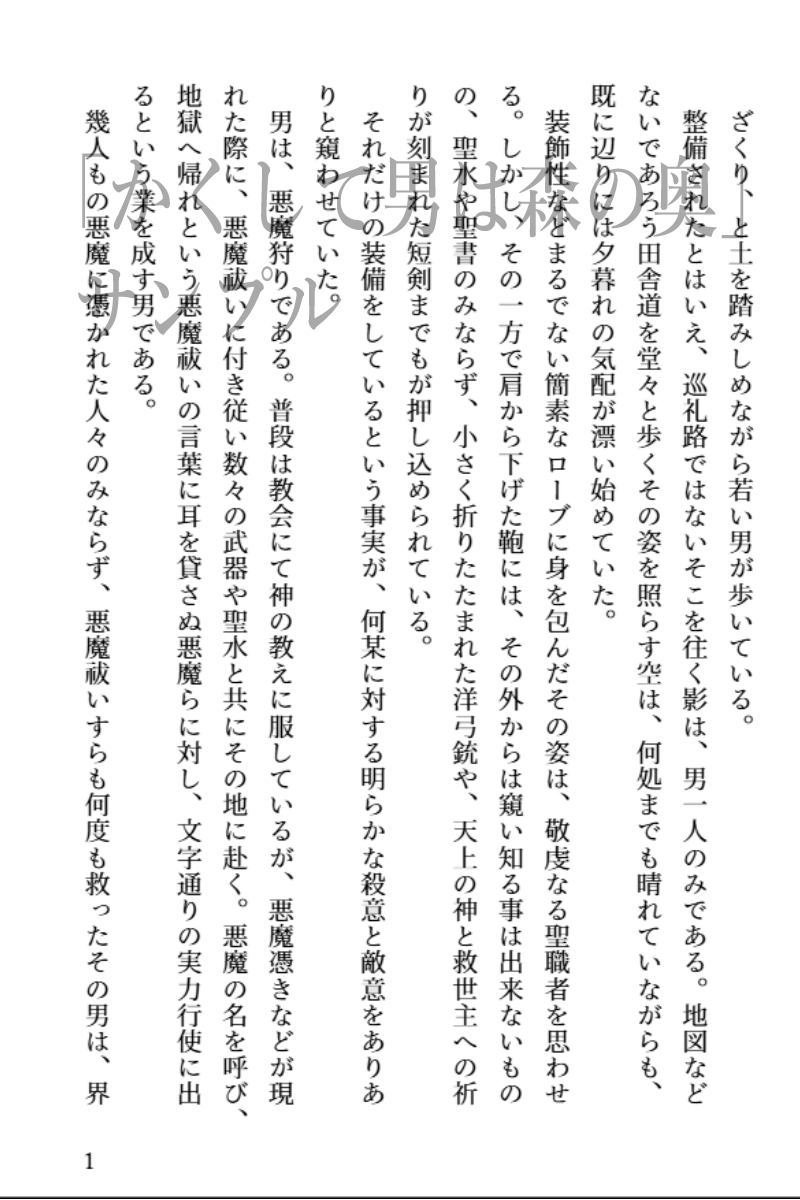 「かくして男は森の奥」
サンプル
ざくり、と土を踏みしめながら若い男が歩いている。
整備されたとはいえ、巡礼路ではないそこを往く影は、男一人のみである。地図など
ないであろう田舎道を堂々と歩くその姿を照らす空は、何処までも晴れていながらも、
既に辺りには夕暮れの気配が漂い始めていた。
装飾性などまるでない簡素なローブに身を包んだその姿は、敬虔なる聖職者を思わせ
る。しかし、その一方で肩から下げた鞄には、その外からは窺い知る事は出来ないもの
の、聖水や聖書のみならず、小さく折りたたまれた洋弓銃や、天上の神と救世主への祈
りが刻まれた短剣までもが押し込められている。
それだけの装備をしているという事実が、何某に対する明らかな殺意と敵意をありあ
りと窺わせていた。
男は、悪魔狩りである。普段は教会にて神の教えに服しているが、悪魔憑きなどが現
れた際に、悪魔祓いに付き従い数々の武器や聖水と共にその地に赴く。悪魔の名を呼び、
地獄へ帰れという悪魔祓いの言葉に耳を貸さぬ悪魔らに対し、文字通りの実力行使に出
るという業を成す男である。
幾人もの悪魔に憑かれた人々のみならず、悪魔祓いすらも何度も救ったその男は、界
1